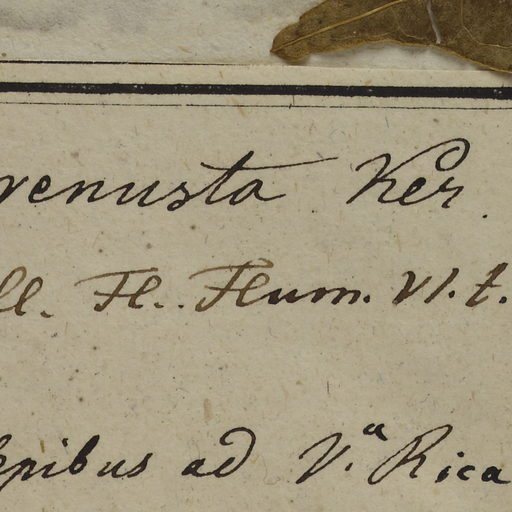 venusta Ker.
ll. Fl. Flum. VI. t.
epibus ad V.ª Rica